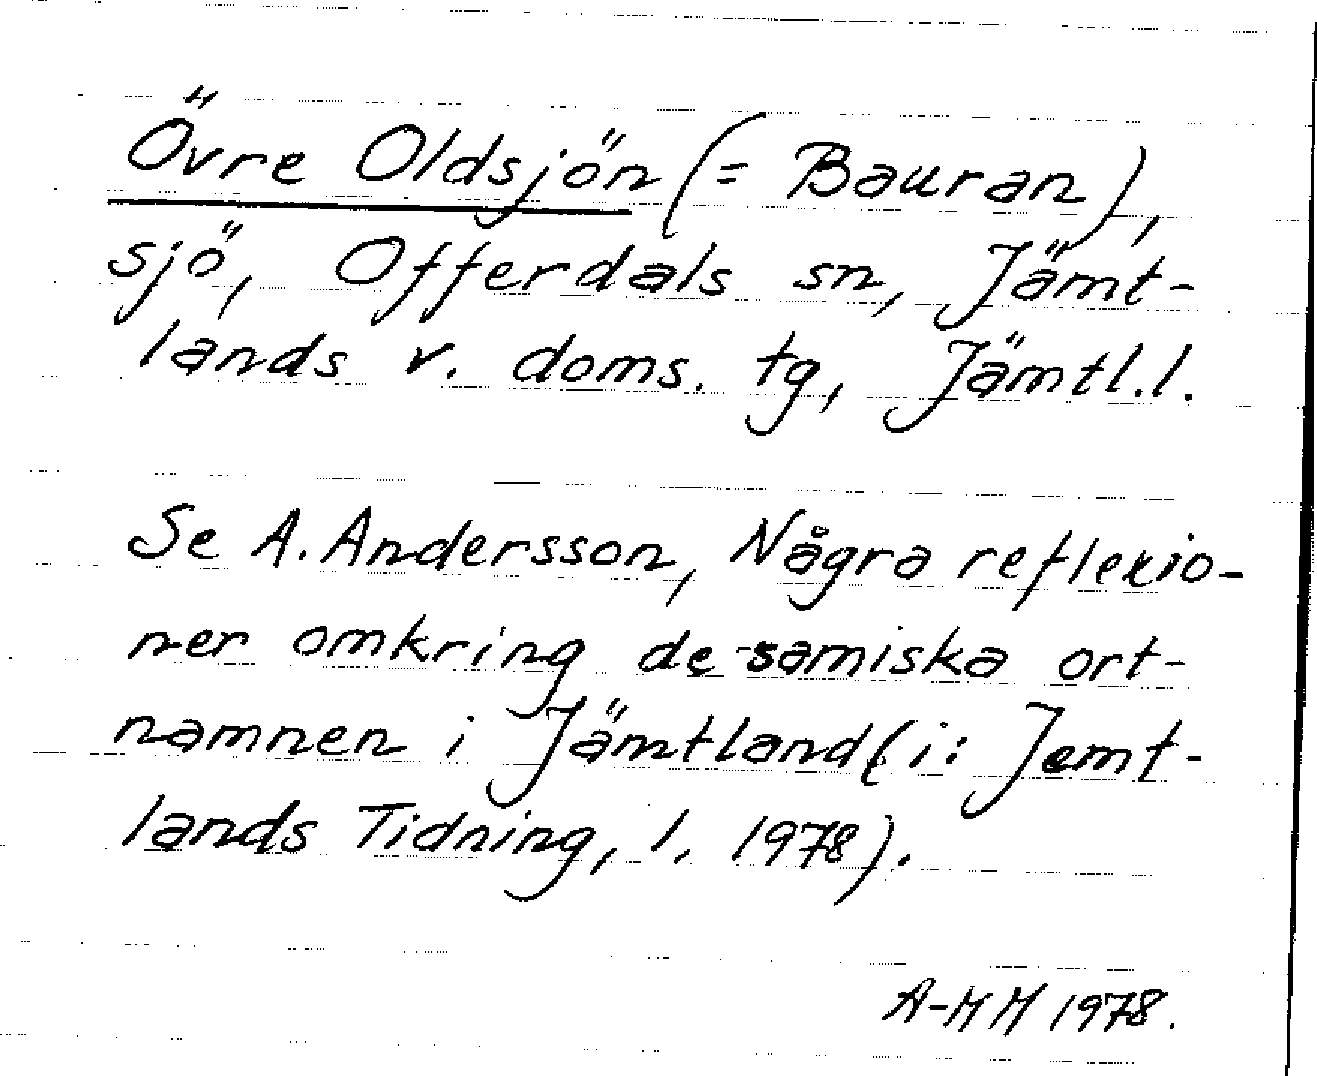 Övre Oldsjön (= Bauran),
sjö, Offerdals sn, Jämt-
lands v. doms. tg, Jämtl.l.
Se A. Andersson, Några reflexio-
ner omkring de samiska ort-
namnen i Jämtland (i: Jemt-
lands Tidning, 1. 1978).
A-MM 1978.